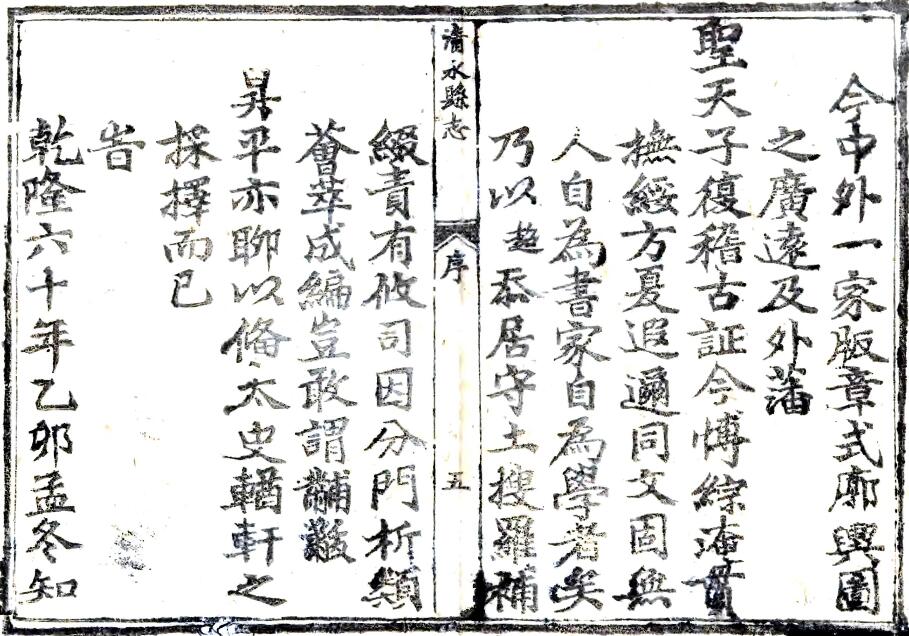 今中外一家版章式廓輿圖
之廣遠及外藩
聖天子復稽古証今博綜淹貫
撫綏方夏遐邇同文固無
人自為書家自為學者矣
乃以超忝居守土搜羅補
清水縣志
序
五
綴責有攸司因分門析類
薈萃成編豈敢謂黼黻
昇平亦聊以備太史輶軒之
採擇而已
旹
乾隆六十年乙卯孟冬知